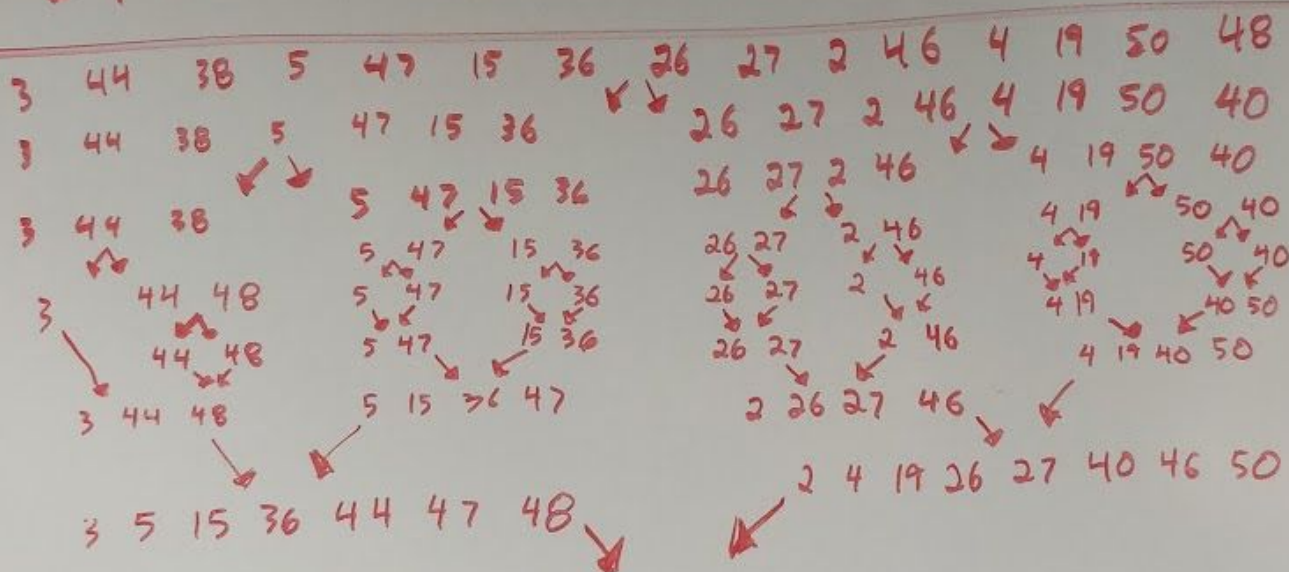 3 44 38 5 47 15 36 26 27 2 46 4 19 50 48
3 44 38 5 47 15 36 26 27 2 46 4 19 50 40
3 44 38 5 47 15 36 26 27 2 46 4 19 50 40
5 47 15 36 26 27 2 46 4 19 50 40
3 44 48 5 47 15 36 26 27 2 46 4 19 50 40
44 48 5 47 15 36 26 27 2 46 4 19 40 50
3 44 48 5 15 36 47 2 26 27 46 4 19 40 50
3 5 15 36 44 47 48 2 4 19 26 27 40 46 50